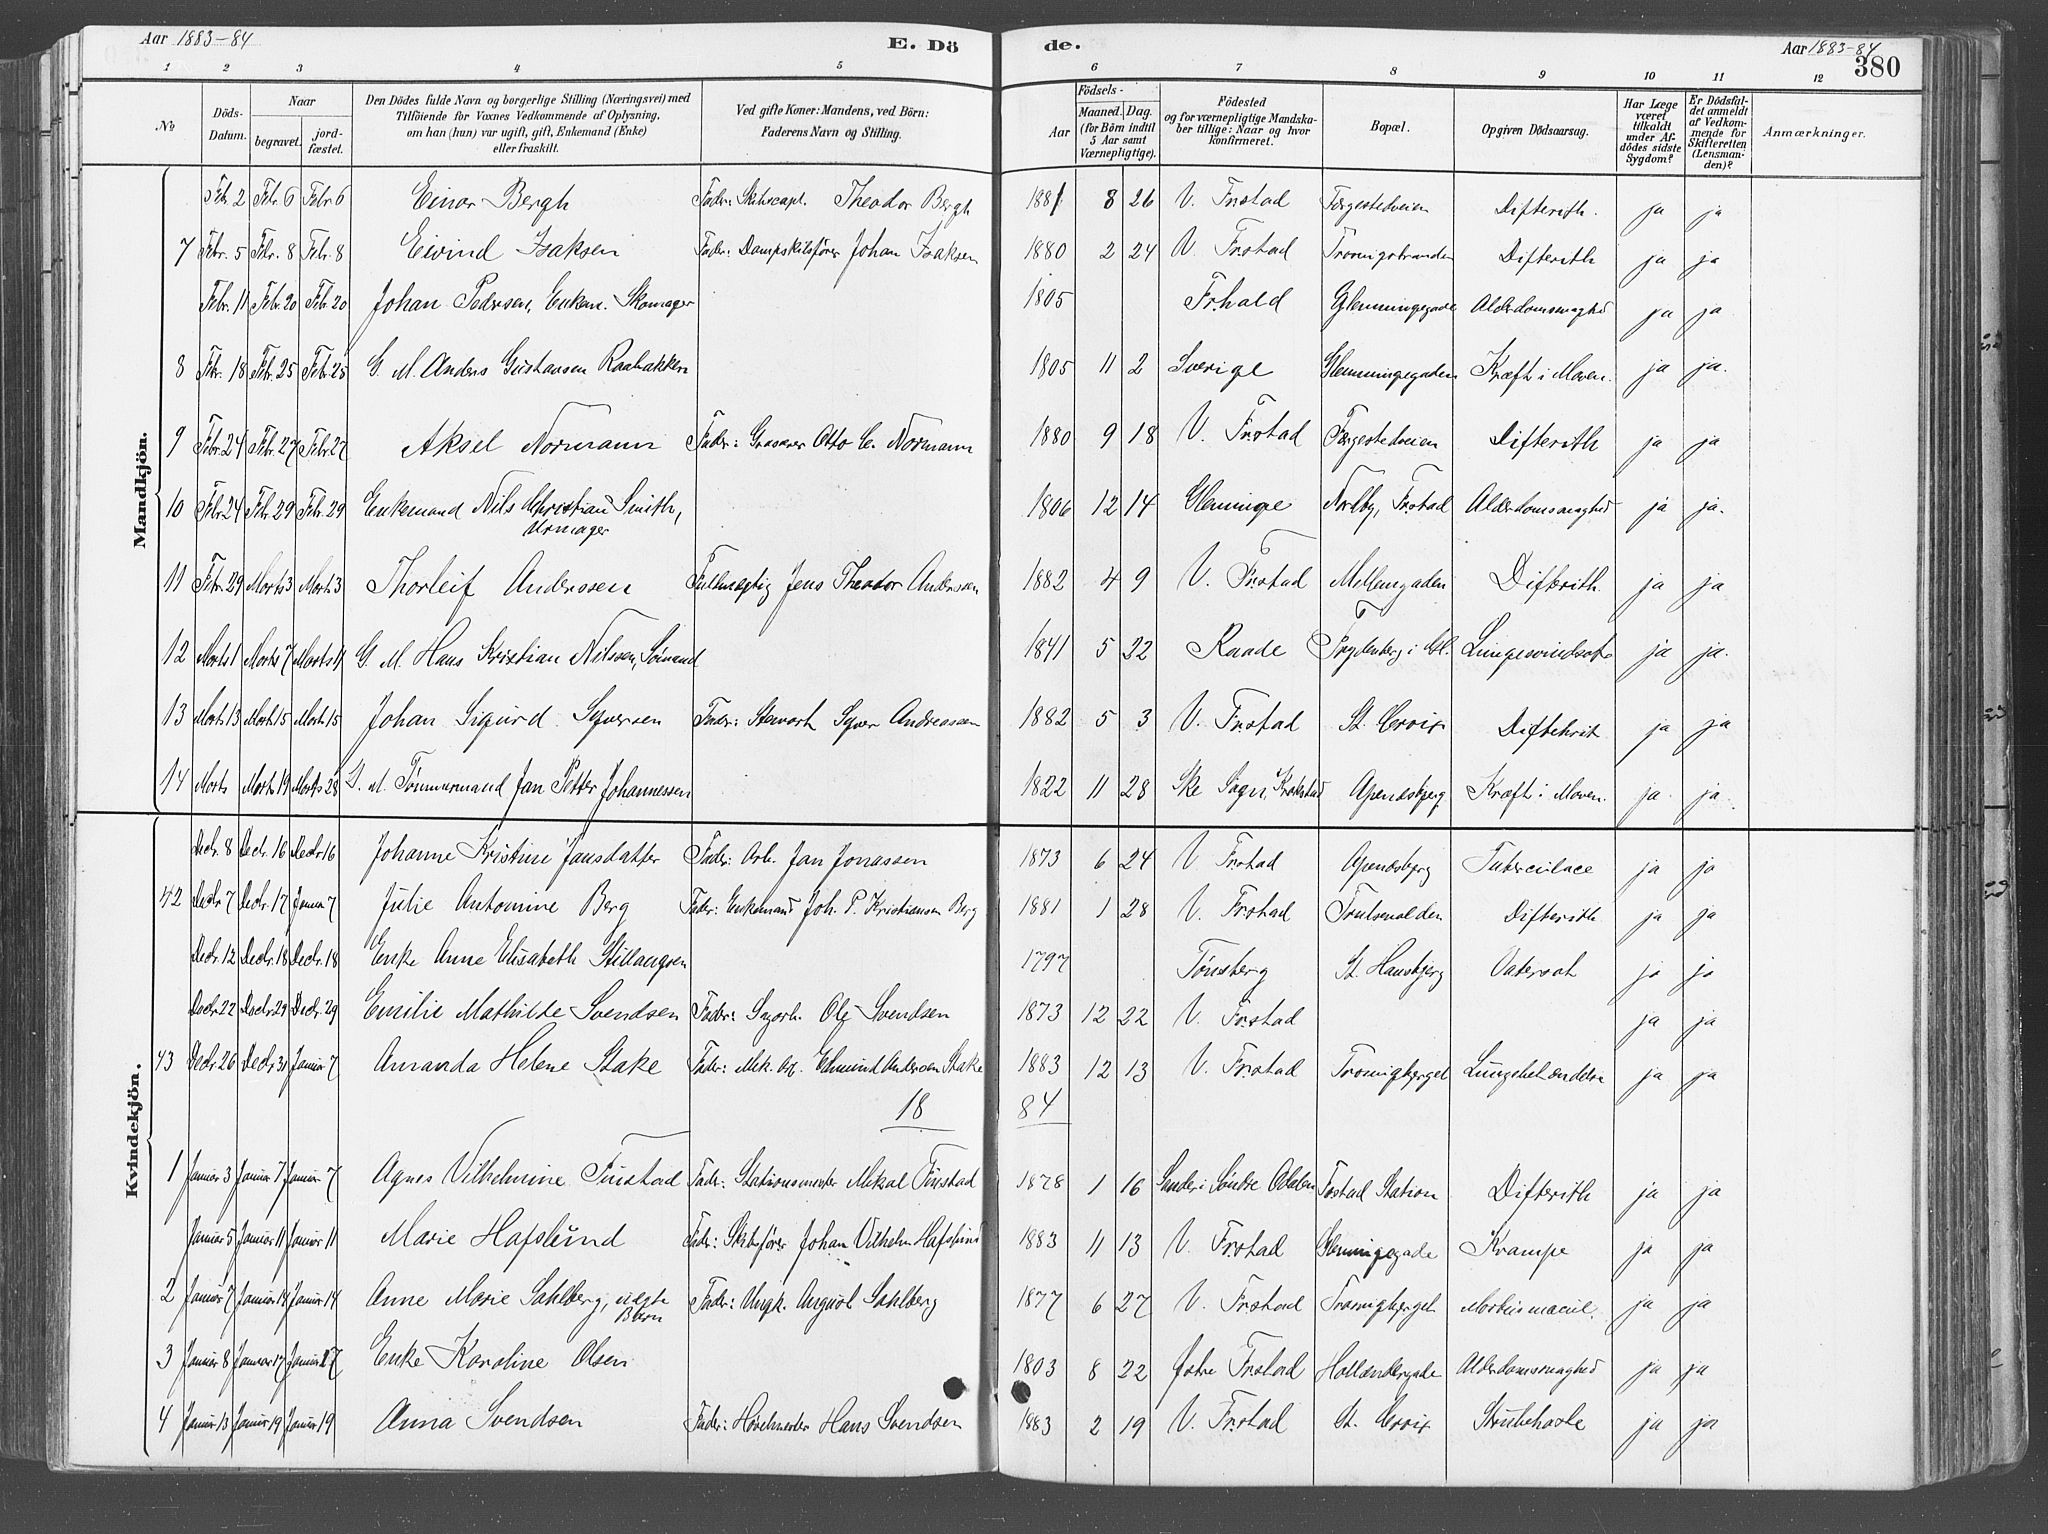 Aar 1883-84
E. Dö
de.
Aar 1883-84
380
1 2 3 4 5 6 7 8 9 10 11 12
No
Döds-Datum.
Naar
begravet.
jord-fæstet.
Den Dödes fulde Navn og borgerlige Stilling (Næringsvei) med
Tilföiende for Voxnes Vedkommende af Oplysning,
om han (hun) var ugift, gift, Enkemand (Enke)
eller fraskilt.
Ved gifte Koner: Mandens, ved Börn:
Faderens Navn og Stilling.
Födsels-
Aar
Maaned.
Dag.
(for Börn indtil
5 Aar samt
Værnepligtige).
Födested
og for værnepligtige Mandska-
ber tillige: Naar og hvor
konfirmeret.
Bopæl.
Opgiven Dödsaarsag.
Har Læge
været
tilkaldt
under Af-
dödes sidste
Sygdom?
Er Dödsfal-
det anmeldt
af Vedkom-
mende for
Skifteretten
(Lensman-
den)?
Anmærkninger.
Mandkjön.
Febr. 2 Febr. 6 Febr. 6 Einar Bergh Fader: Skibscapt. Theodor Bergh 1881 8 26 V. Frstad Færgestedveien Difterith. ja ja
7 Febr. 5 Febr. 8 Febr. 8 Eivind Isaksen Fader: Dampskibsfører Johan Isaksen 1880 2 24 V. Frstad Difterith ja ja
Febr. 11 Febr. 20 Febr. 20 Johan Pedersen, Enkem. Skomager 1805 Frhald Glemmingegade Alderdomssvaghed ja ja
8 Febr. 18 Febr. 25 Febr. 25 G. M. Anders Gustavsen Raabakken 1805 11 2 Sverige Glemmingegaden Kræft i Maven. ja ja.
9 Febr. 24 Febr. 27 Febr. 27 Aksel Normann Fader: Gravører Otto C. Normann 1880 9 18 V. Frstad Færgestedveien Difterith ja ja
10 Febr. 24 Febr. 29 Febr. 29 Enkemand Nils Christian Smith, 1806 12 14 Glemminge Nørlby, Frstad Alderdomssvaghed ja ja.
Urmager
11 Febr. 29 Marts 3 Marts 3 Thorleif Anderssen Fuldmægtig Jens Theodor Anderssen 1882 4 9 V. Frstad Mellemgaden Difterith. ja ja
12 Marts 1 Marts 7 Marts 11 G. M. Hans Kristian Nilssen, Sømand 1841 5 22 Raade Trydenberg i Gl. Lungesvindsot ja ja.
13 Marts 13 Marts 15 Marts 15 Johan Sigurd Syversen Fader: Stewart Syver Andreassen 1882 5 3 V. Frstad St. Croix Diftehrit ja ja
14 Marts Marts 19 Marts 28 G. M. Tømmermand Jan Petter Johannessen 1822 11 28 Ske Sogn, Krokstad Apenæsbjerg Kræft i Maven. ja ja
Kvindekjön.
Decbr. 8 Decbr. 16 Decbr. 16 Johanne Kristine Jansdatter Fader: Arb. Jan Jonassen 1873 6 24 V. Frstad Apenæsbjerg Tuberculace ja ja
42 Decbr. 7 Decbr. 17 Januar 7 Julie Antonine Berg Fader: Enkemand Joh. P. Kristiansen Berg 1881 1 28 V. Frstad Difterith ja ja
Decbr. 12 Decbr. 18 Decbr. 18 Enke Anne Elisabeth Stillaugsen 1797 Tønsberg St. Hansbjerg Vatersot ja ja
Decbr. 22 Decbr. 29 Decbr. 29 Emilie Mathilde Svendsen Fader: Sagarb. Ole Svendsen 1873 12 22 V. Frstad ja ja
43 Decbr. 26 Decbr. 31 Januar 7 Amanda Helene Stake Fader: Mek. Arb. Edmund Andersen Stake 1883 12 13 V. Frstad Tromigbjerget Lungebetændelse ja ja
18 84
1 Januar 3 Januar 7 Januar 7 Agnes Vilhelmine Finstad Fader: Stationsmester Mikal Finstad 1878 1 16 Sander i Søndre Odalen Frstad Station Difterith ja ja
Januar 5 Januar 11 Januar 11 Marie Hafslund Fader: Skibsfører Johan Vilhelm Hafslund 1883 11 13 V. Frstad Glemmingegade Krampe ja ja
2 Januar 7 Januar 14 Januar 14 Anne Marie Sahlberg, uægte Fader: Ungk. August Sahlberg 1877 6 27 V. Frstad Tromigbjerget Morbus macul. ja ja
Barn
3 Januar 8 Januar 17 Januar 17 Enke Karoline Olsen 1803 8 22 Østre Frstad Hollændergade Alderdomssvaghed ja ja
4 Januar 13 Januar 19 Januar 19 Anna Svendsen Fader: Høvelmester Hans Svendsen 1883 2 19 V. Frstad St. Croix Strubehoste ja ja